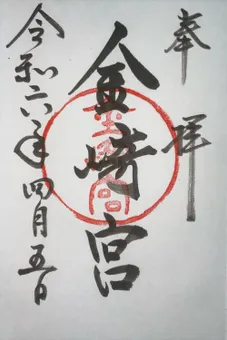 奉拝
金崎宮
令和六年四月五日